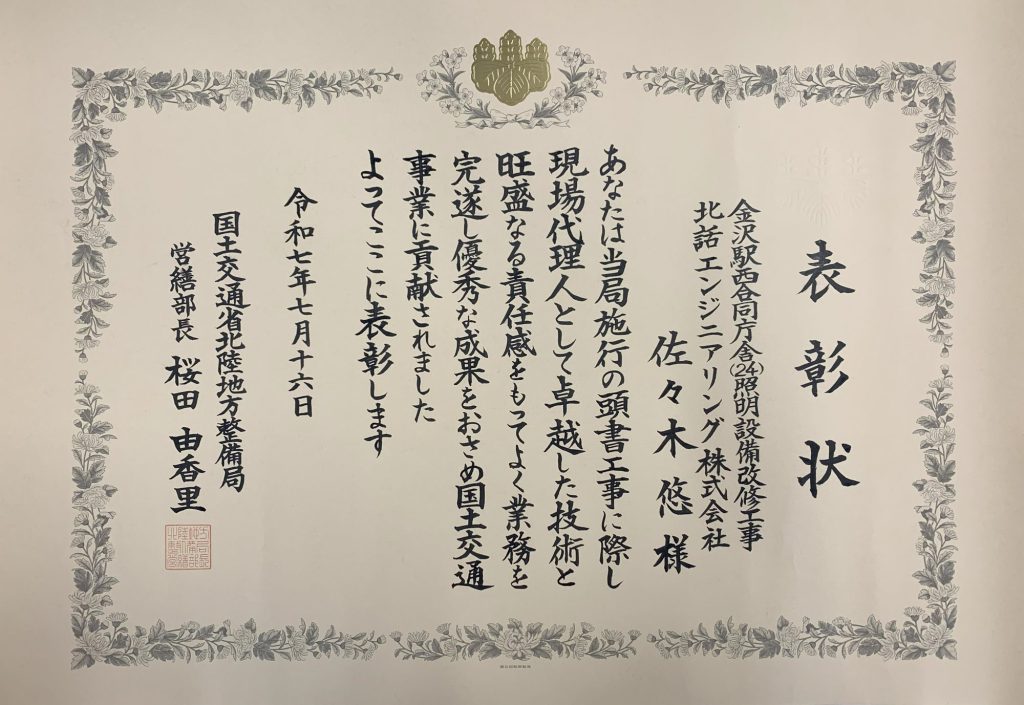 表彰状
金沢駅西合同庁舎(24)照明設備改修工事
北話エンジニアリング株式会社
佐々木悠様
あなたは当局施行の頭書工事に際し
現場代理人として卓越した技術と
旺盛なる責任感をもってよく業務を
完遂し優秀な成果をおさめ国土交通
事業に貢献されました
よってここに表彰します
令和七年七月十六日
国土交通省北陸地方整備局
営繕部長 桜田 由香里